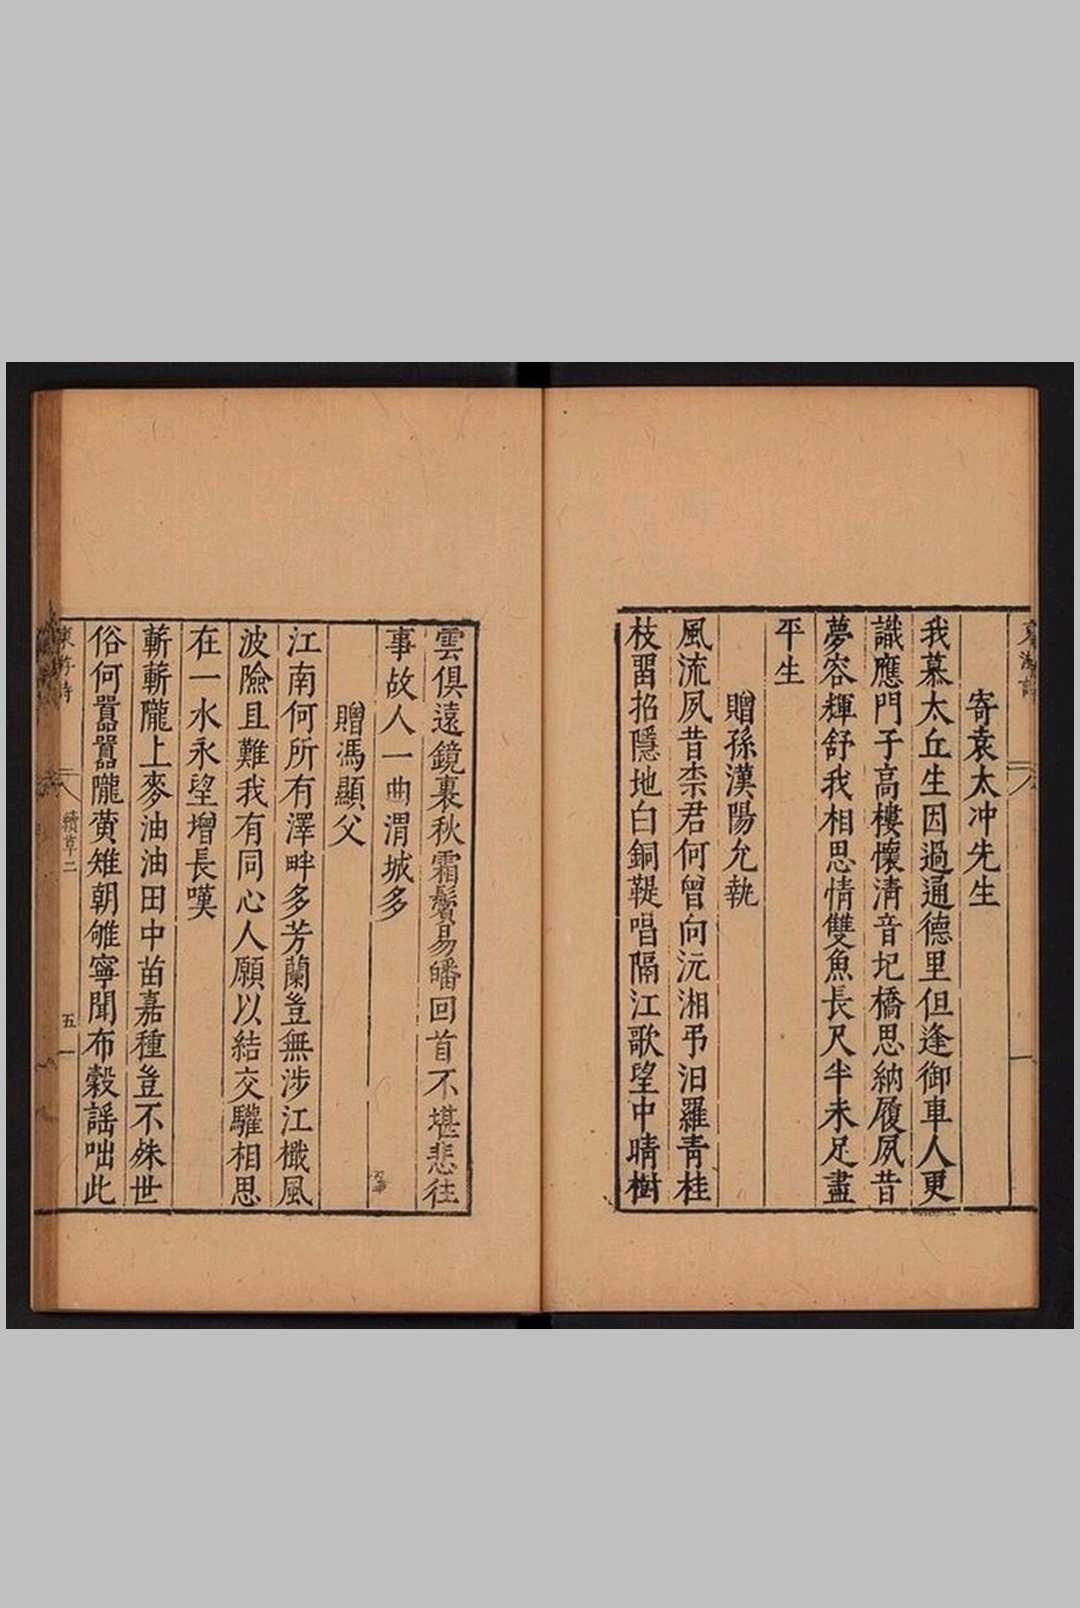 寄袁太冲先生
我慕太丘生因過通德里但逢御車人更
識應門子高樓懷清音圯橋思納履夙昔
夢容輝舒我相思情雙魚長尺半未足盡
平生
贈孫漢陽允執
風流夙昔柰君何曾向沅湘弔汨羅青桂
枝畱招隱地白銅鞮唱隔江歌望中晴樹
雲俱遠鏡裏秋霜鬢易皤回首不堪悲往
事故人一曲渭城多
贈馮顯父
江南何所有澤畔多芳蘭豈無涉江檝風
波險且難我有同心人願以結交驩相思
在一水永望增長嘆
蘄蘄隴上麥油油田中苗嘉種豈不殊世
俗何囂囂隴黃雉朝雊寧聞布穀謡咄此
續草二
五